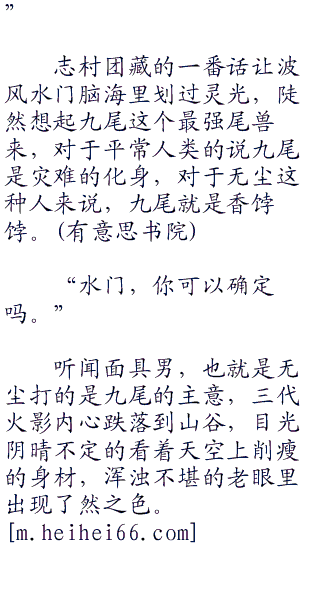 ”
志村团藏的一番话让波
风水门脑海里划过灵光，陡
然想起九尾这个最强尾兽
来，对于平常人类的说九尾
是灾难的化身，对于无尘这
种人来说，九尾就是香饽
饽。(有意思书院)
“水门，你可以确定
吗。”
听闻面具男，也就是无
尘打的是九尾的主意，三代
火影内心跌落到山谷，目光
阴晴不定的看着天空上削瘦
的身材，浑浊不堪的老眼里
出现了然之色。
[m.heihei66.com]